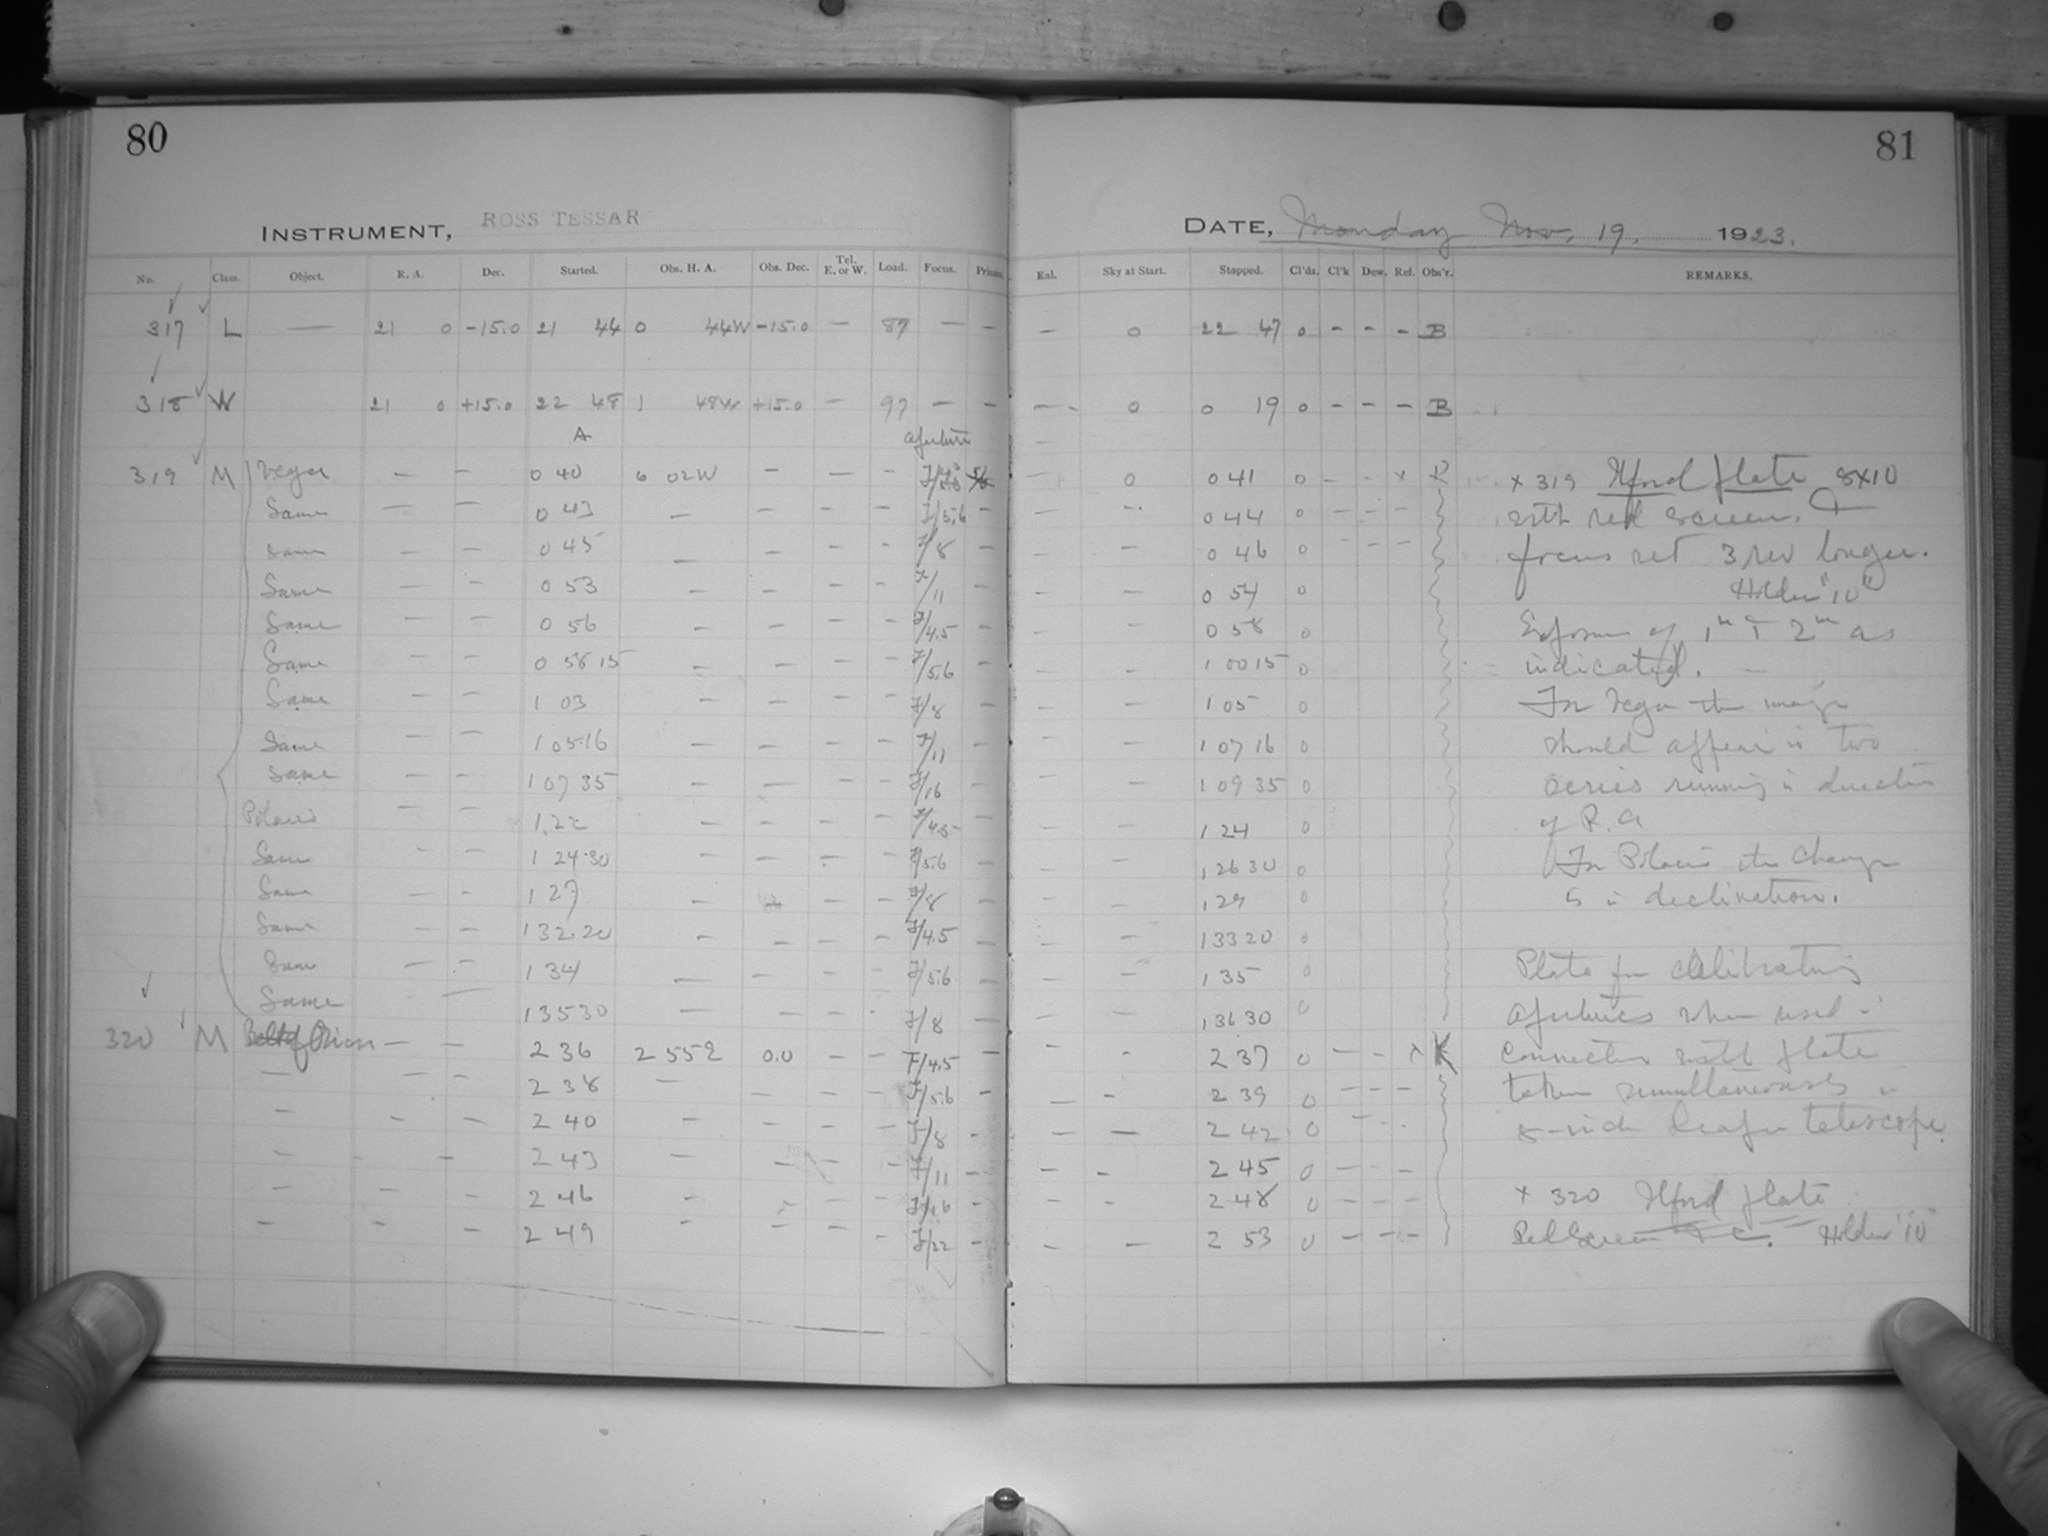 80
INSTRUMENT, ROSS TESSAR
No. Class. Object. R. A. Dec. Started. Obs. H. A. Obs. Dec. Tel. E. or W. Load. Focus. Prisms.
317 L — 21 0 -15.0 21 44 0 44W -15.0 — 87 — —
318 W 21 0 +15.0 22 48 1 48W +15.0 — 97 — —
A aperture
319 M Vega — — 0 40 6 02W — — —
Same — — 0 43 — — — — F/5.6 —
Same — — 0 45 — — — — F/8 —
Same — — 0 53 — — — — F/11 —
Same — — 0 56 — — — — F/4.5 —
Same — — 0 58 15 — — — — F/5.6 —
Same — — 1 03 — — — — F/8 —
Same — — 1 05.16 — — — — F/11 —
Same — — 1 07 35 — — — — F/16 —
Polaris — — 1.22 — — — — F/4.5 —
Same — — 1 24.30 — — — — F/5.6 —
Same — — 1 27 — — — — F/8 —
Same — — 1 32.20 — — — — F/4.5 —
Same — — 1 34 — — — — F/5.6 —
Same — — 1 35 30 — — — — F/8 —
320 M Belt of Orion — — 2 36 2 55 0.0 — — F/4.5
— — — 2 38 — — — — F/5.6 —
— — — 2 40 — — — — F/8 —
— — — 2 43 — — — — F/11 —
— — — 2 46 — — — — F/16 —
— — — 2 49 — — — — F/22 —
81
DATE, Monday Nov. 19, 1923.
Eal. Sky at Start. Stopped. Cl'ds. Cl'k Dew. Ref. Obs'r. REMARKS.
— 0 22 47 0 - - - B
— 0 0 19 0 - - - B
— 0 0 41 0 - - x K x 319 Ilford plate 8x10
— — 0 44 0 - - - with red screen.
— — 0 46 0 - - - focus set 3 rev longer.
— — 0 54 0 Holder "10"
— — 0 58 0 Exposures of 1m & 2m as
— — 1 00 15 0 indicated.
— — 1 05 0 For Vega the images
— — 1 07 16 0 should appear in two
— — 1 09 35 0 series running in direction
— — 1 24 0 of R.A
— — 1 26 30 0 For Polaris the change
— — 1 29 0 is in declination.
— — 1 33 20 0
— — 1 35 0 Plate for calibrating
— — 1 36 30 0 apertures when used in
— — 2 37 0 - - x K connection with plate
— — 2 39 0 - - - taken simultaneously in
— — 2 42 0 - - - 8-inch Draper telescope.
— — 2 45 0 - - -
— — 2 48 0 - - - x 320 Ilford plate
— — 2 53 0 - - - Red Screen Holder "10"